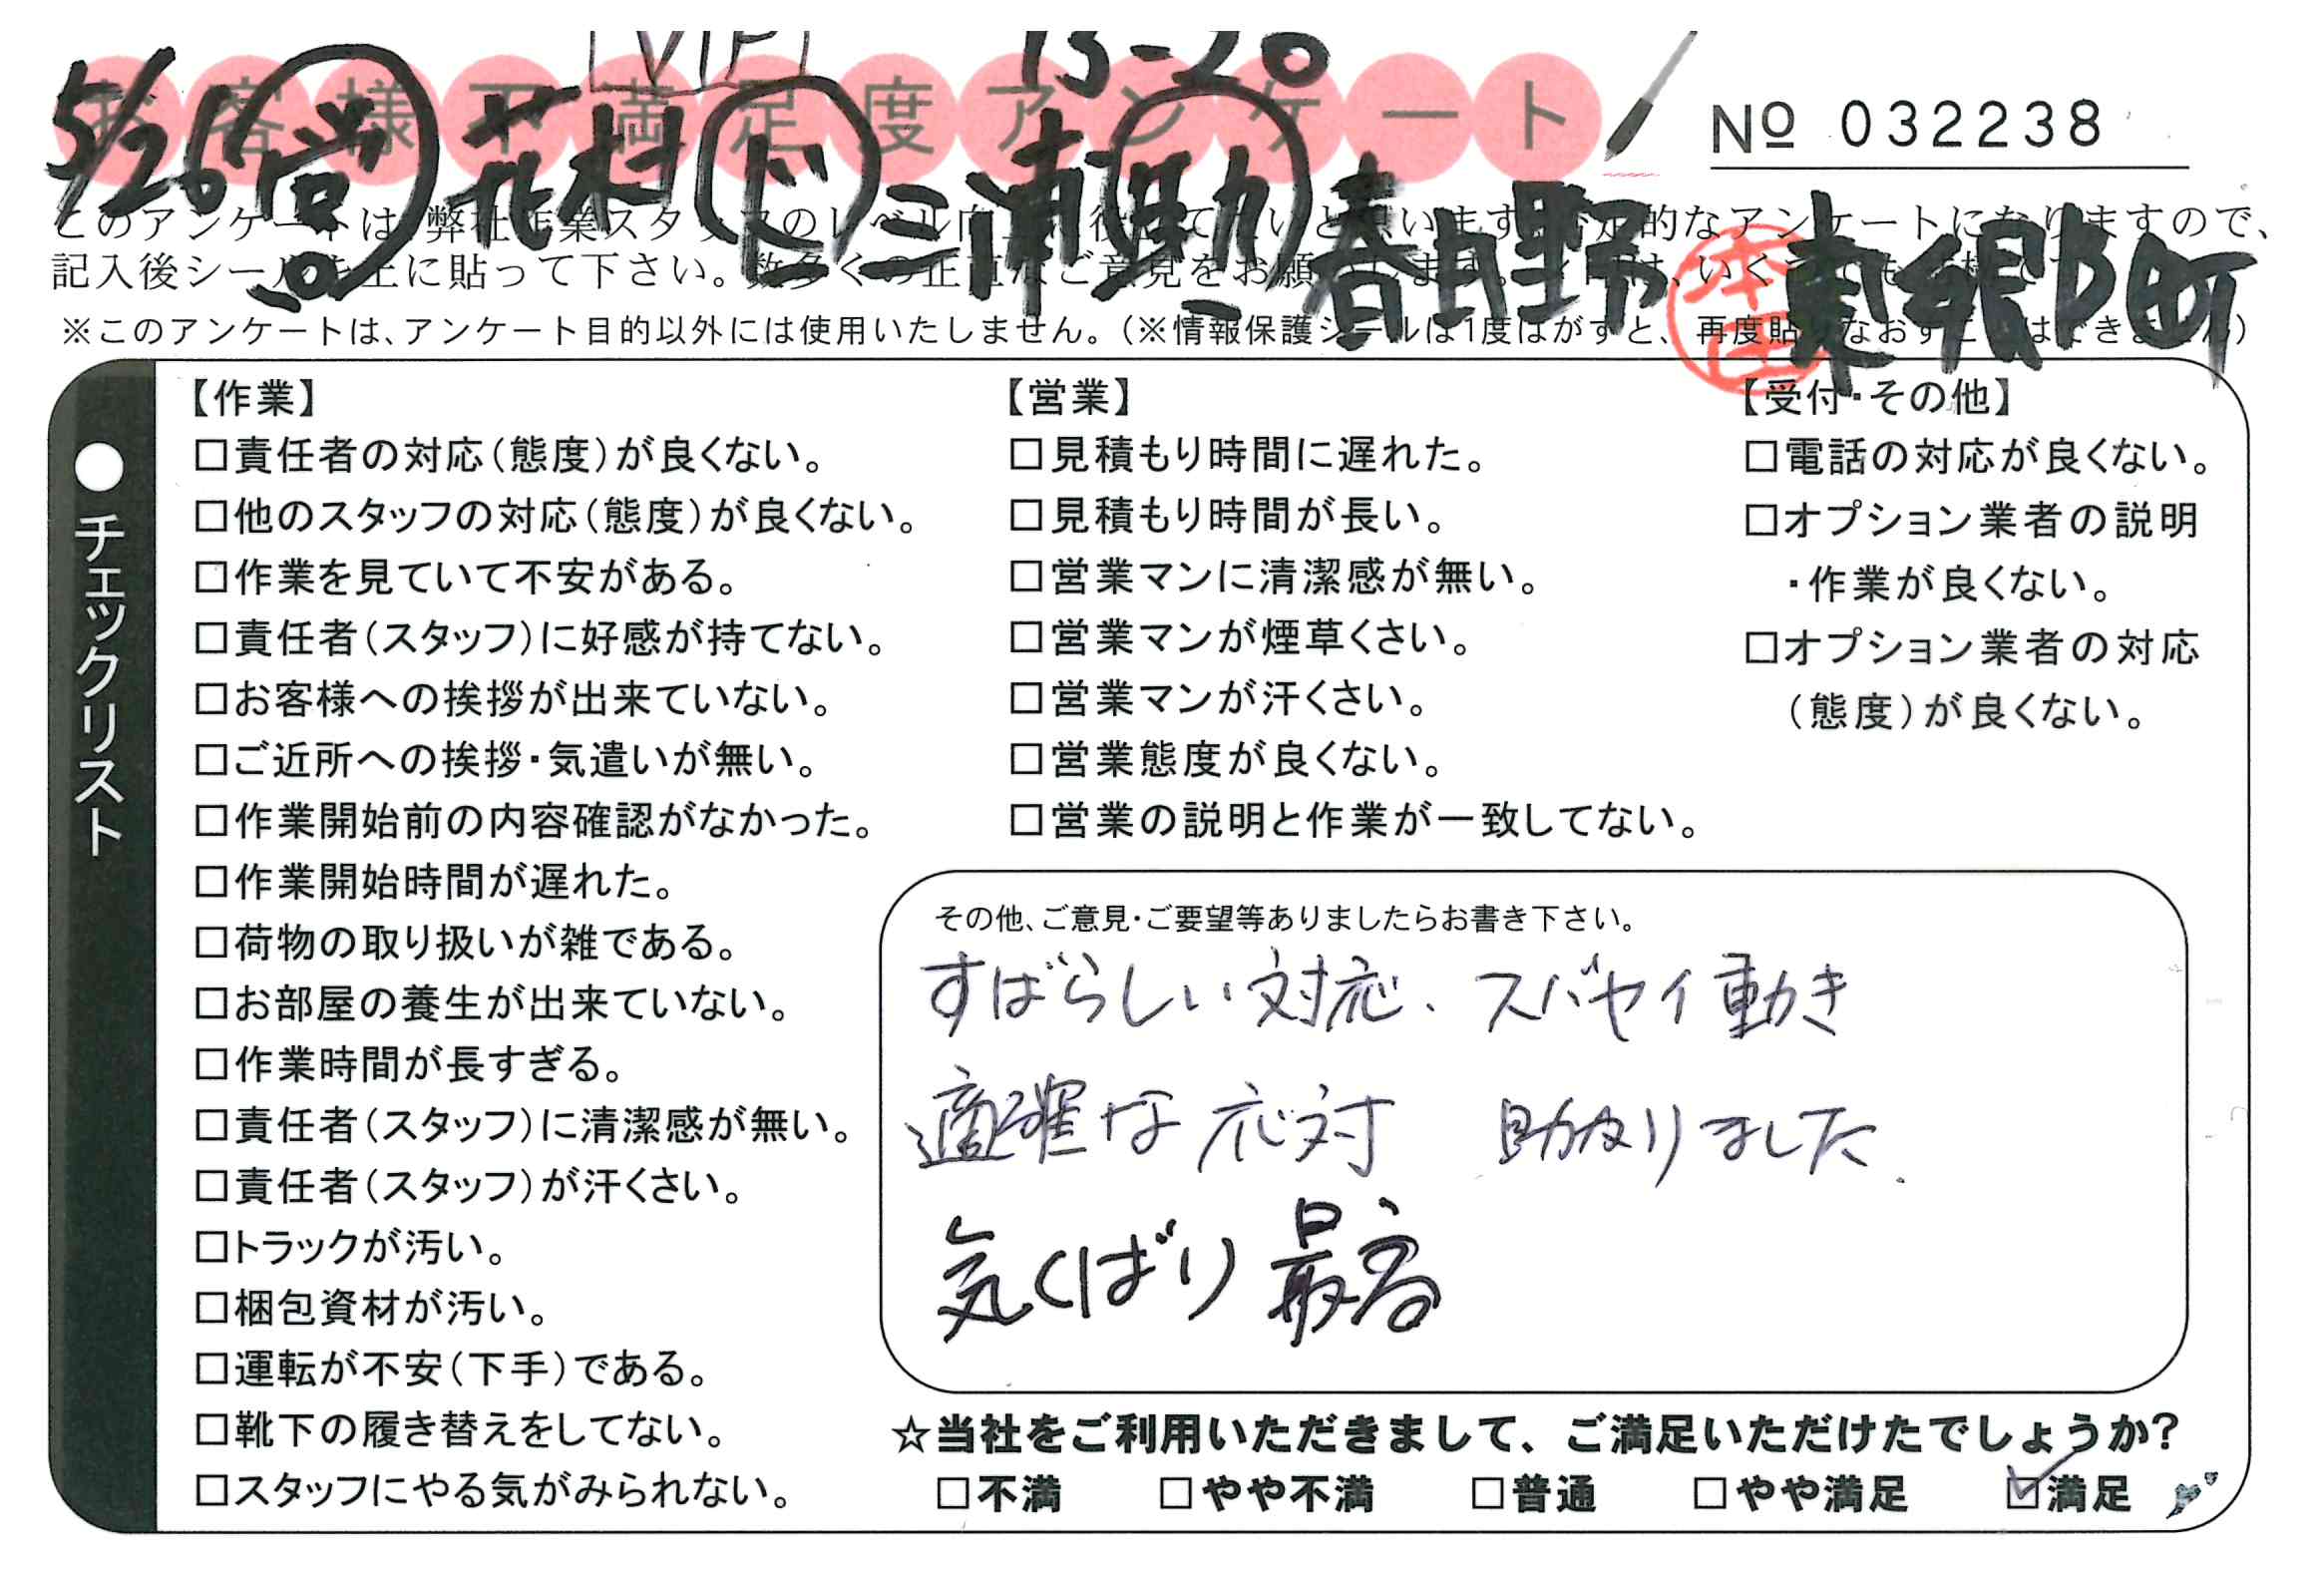 VIP 13-20
お客様不満足度アンケート
№ 032238
5/26 営 花村 ド 三浦 助 春日野 東郷町
このアンケートは、弊社作業スタッフのレベル向上
なアンケートになりますので、
記入後シールを上に貼って下さい。数多くの正直なご意見をお願
※このアンケートは、アンケート目的以外には使用いたしません。（※情報保護シールは1度はがすと、再度貼りなおすことはできません）
本田
●チェックリスト
【作業】
□責任者の対応（態度）が良くない。
□他のスタッフの対応（態度）が良くない。
□作業を見ていて不安がある。
□責任者（スタッフ）に好感が持てない。
□お客様への挨拶が出来ていない。
□ご近所への挨拶・気遣いが無い。
□作業開始前の内容確認がなかった。
□作業開始時間が遅れた。
□荷物の取り扱いが雑である。
□お部屋の養生が出来ていない。
□作業時間が長すぎる。
□責任者（スタッフ）に清潔感が無い。
□責任者（スタッフ）が汗くさい。
□トラックが汚い。
□梱包資材が汚い。
□運転が不安（下手）である。
□靴下の履き替えをしてない。
□スタッフにやる気がみられない。
【営業】
□見積もり時間に遅れた。
□見積もり時間が長い。
□営業マンに清潔感が無い。
□営業マンが煙草くさい。
□営業マンが汗くさい。
□営業態度が良くない。
□営業の説明と作業が一致してない。
【受付・その他】
□電話の対応が良くない。
□オプション業者の説明
・作業が良くない。
□オプション業者の対応
（態度）が良くない。
その他、ご意見・ご要望等ありましたらお書き下さい。
すばらしい対応、スバヤイ動き
適確な応対 助かりました.
気くばり最高
☆当社をご利用いただきまして、ご満足いただけたでしょうか?
□不満 □やや不満 □普通 □やや満足 ☑満足